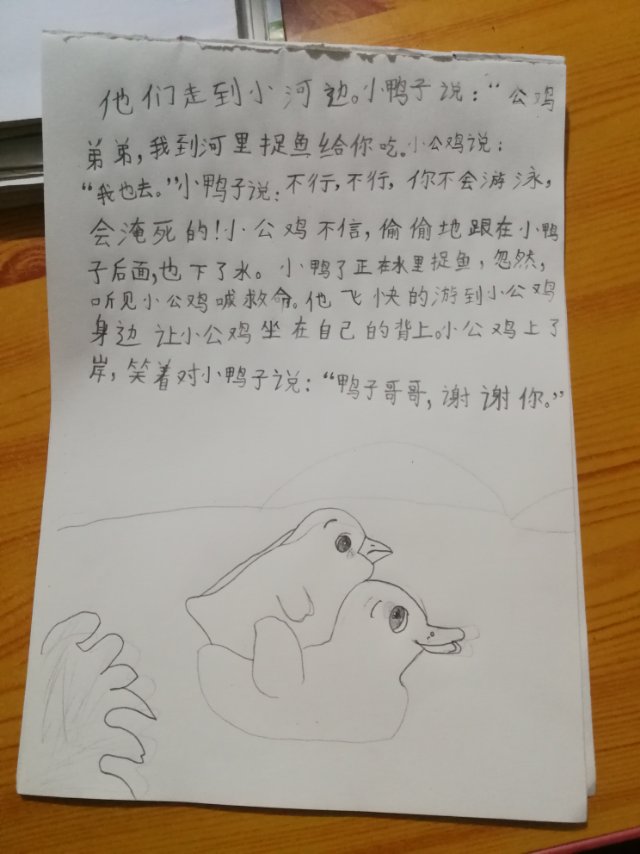 他们走到小河边。小鸭子说：“公鸡
弟弟，我到河里捉鱼给你吃。小公鸡说：
“我也去。”小鸭子说：不行，不行，你不会游泳，
会淹死的！小公鸡不信，偷偷地跟在小鸭
子后面，也下了水。小鸭了正在水里捉鱼，忽然，
听见小公鸡喊救命。他飞快的游到小公鸡
身边让小公鸡坐在自己的背上。小公鸡上了
岸，笑着对小鸭子说：“鸭子哥哥，谢谢你。”